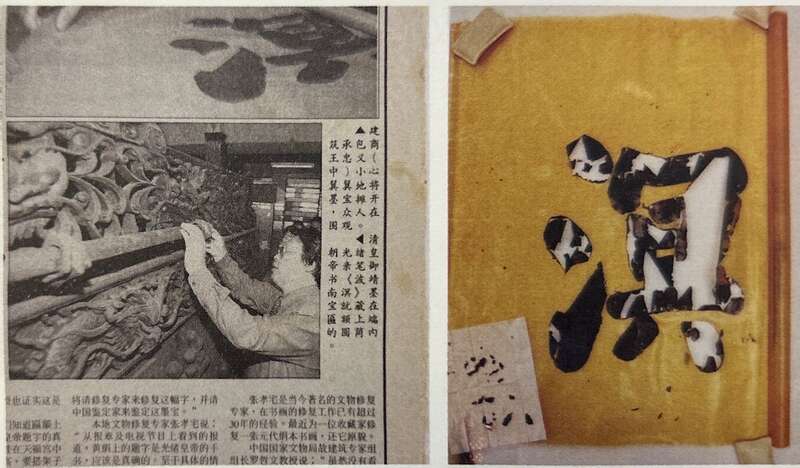 溟
建商(心将开在 清皇御靖墨在端内
▲包义小地摊人。◀绪笔波》藏上简
承忠)翼宝众观 光亲《溟就额圆
筑王中翼墨，围 朝帝书南宝匾的。
也证实这是
知道匾额上
皇帝题字的真
在天福宫中
，要搭架子
将请修复专家来修复这幅字，并请
中国鉴定家来鉴定这墨宝。"
本地文物修复专家张孝宅说：
"从报章及电视节目上看到的报
道，黄绢上的题字是光绪皇帝的手
书，应该是真确的。至于具体的情
张孝宅是当今著名的文物修复
专家，在书画的修复工作已有超过
30年的经验。最近为一位收藏家修
复一张元代绢本书画，还它原貌。
中国国家文物局故建筑专家组
组长罗哲文教授说："虽然没有看